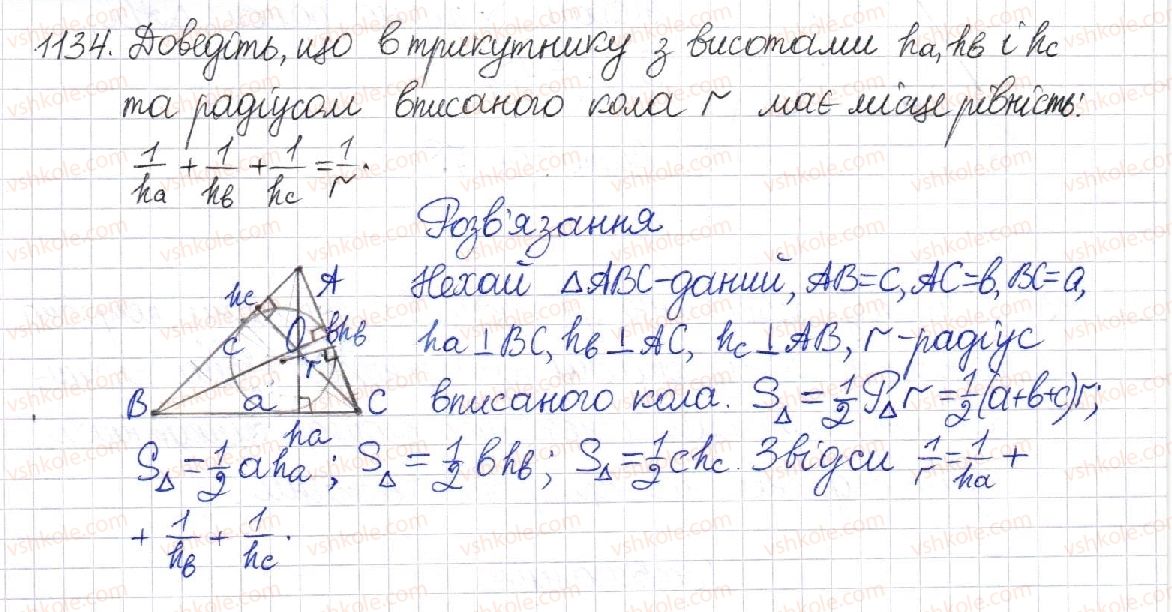 1134. Доведіть, що в трикутнику з висотами hₐ, hв і hс
та радіусом вписаного кола r має місце рівність:
1/ha + 1/hв + 1/hс = 1/r.
Розв'язання
Нехай △ABC-даний, AB=c, AC=в, BC=a,
ha⊥BC, hв⊥AC, hс⊥AB, r-радіус
вписаного кола. S△=1/2 P△r=1/2(a+в+c)r;
S△=1/2 aha; S△=1/2 вhв; S△=1/2 chс. Звідси 1/r=1/ha+
+ 1/hв + 1/hс.
A
hс
c
O
в hв
r
B
a
C
ha
vshkole.com